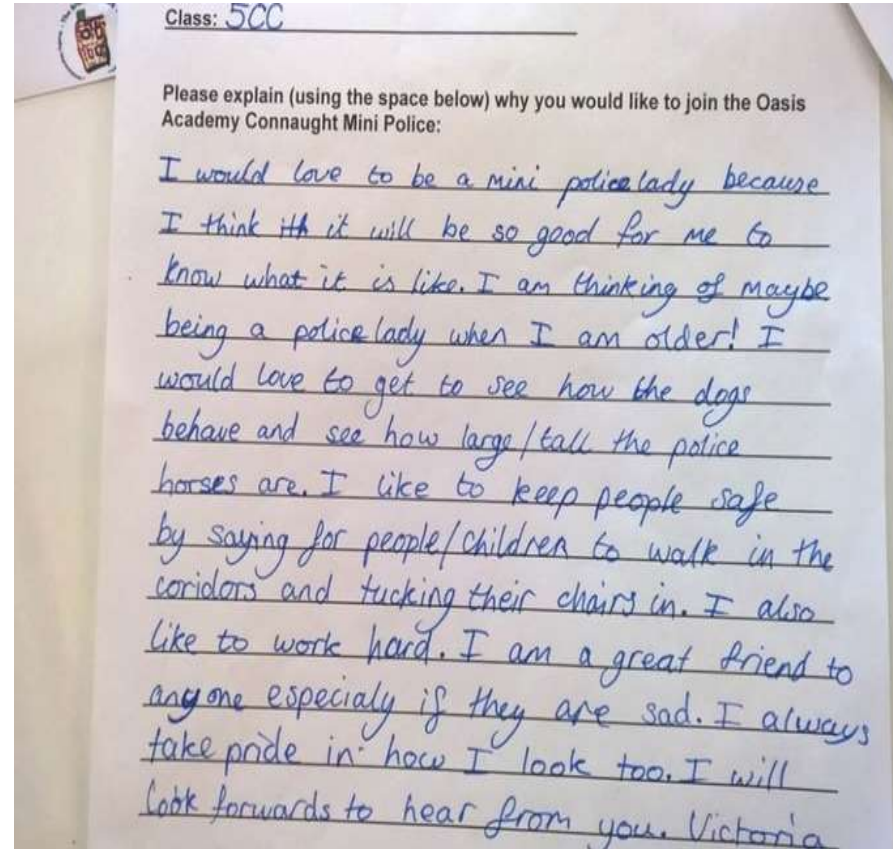 Class: 5CC
Please explain (using the space below) why you would like to join the Oasis
Academy Connaught Mini Police:
I would love to be a mini police lady because
I think ith it will be so good for me to
know what it is like. I am thinking of maybe
being a police lady when I am older! I
would love to get to see how the dogs
behave and see how large/tall the police
horses are. I like to keep people safe
by saying for people/children to walk in the
coridors and tucking their chairs in. I also
like to work hard. I am a great friend to
anyone especialy if they are sad. I always
take pride in how I look too. I will
look forwards to hear from you. Victoria